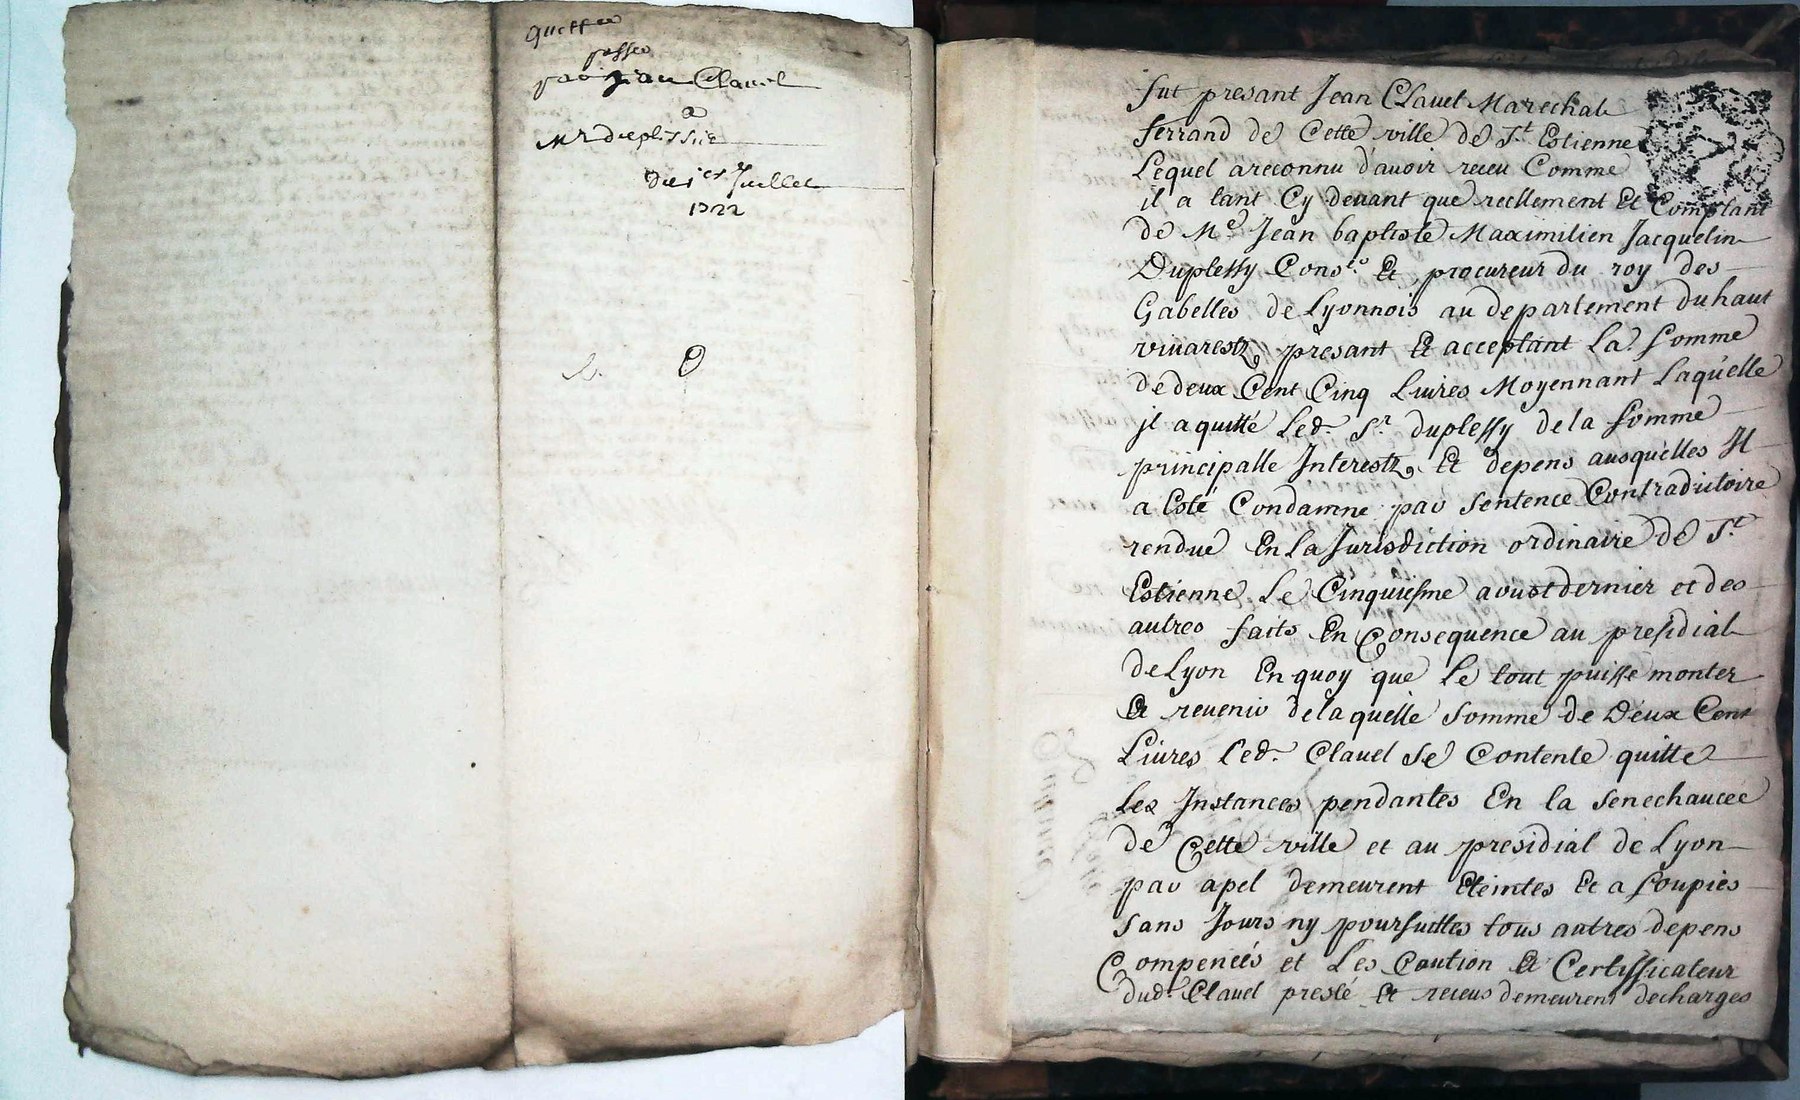 quittce
passée
par jean Clauel
a
Mr duplessis
du 1er Juillet
1722
fut presant Jean Clauel Marechal
ferrand de Cette ville de St Estienne
Lequel a reconnu d'auoir receu Comme
il a tant Cy deuant que reellement Et Comptant
de Me Jean baptiste Maximilien Jacquelin
Duplessy Conser Et procureur du roy des
Gabelles de Lyonnois au departement du haut
viuarestz presant Et acceptant La Somme
de deux Cent Cinq Liures Moyennant Laquelle
jl a quitté Led. Sr. duplessy de la Somme
principalle Interestz Et depens ausquelles Il
a Esté Condamne par Sentence Contradictoire
rendue En La Jurisdiction ordinaire de St
Estienne Le Cinquiesme aoust dernier et des
autres faits En Consequence au presidial
de Lyon En quoy que Le tout puisse monter
Et reuenir de laquelle Somme de Deux Cent
Liures Led. Clauel Se Contente quitte
Les Instances pendantes En la Senechaucée
de Cette ville et au presidial de Lyon
par apel demeurent Eteintes Et a Soupies
Sans Jours ny poursuittes tous autres depens
Compencés et Les Caution Et Certifficateur
dud. Clauel presté Et receus demeurent decharges